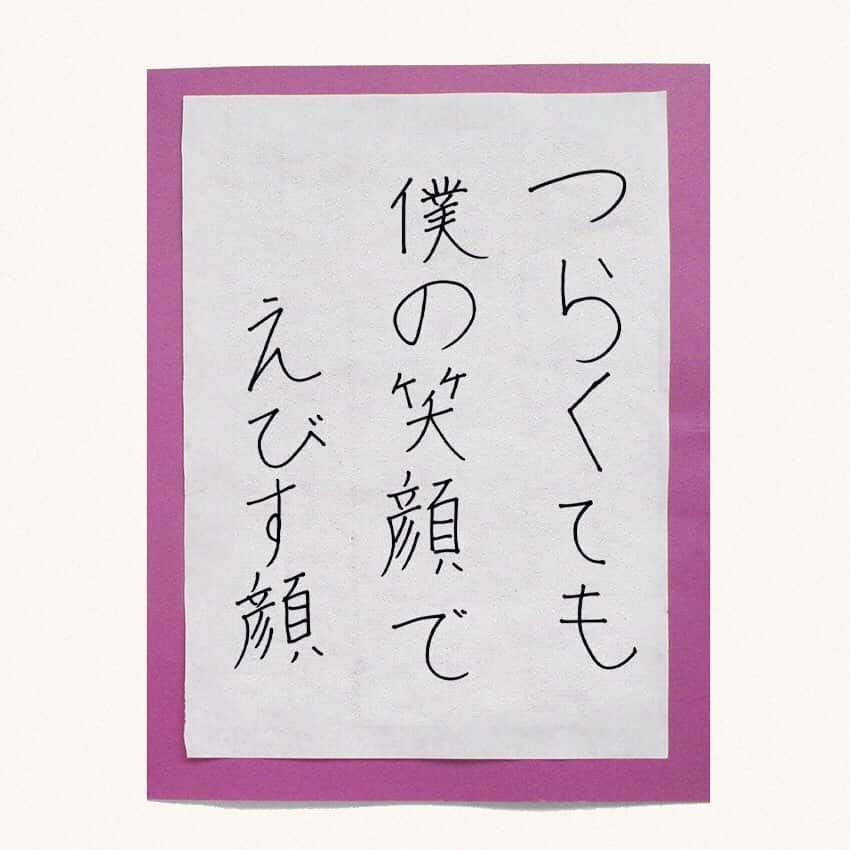 つらくても
僕の笑顔で
えびす顔